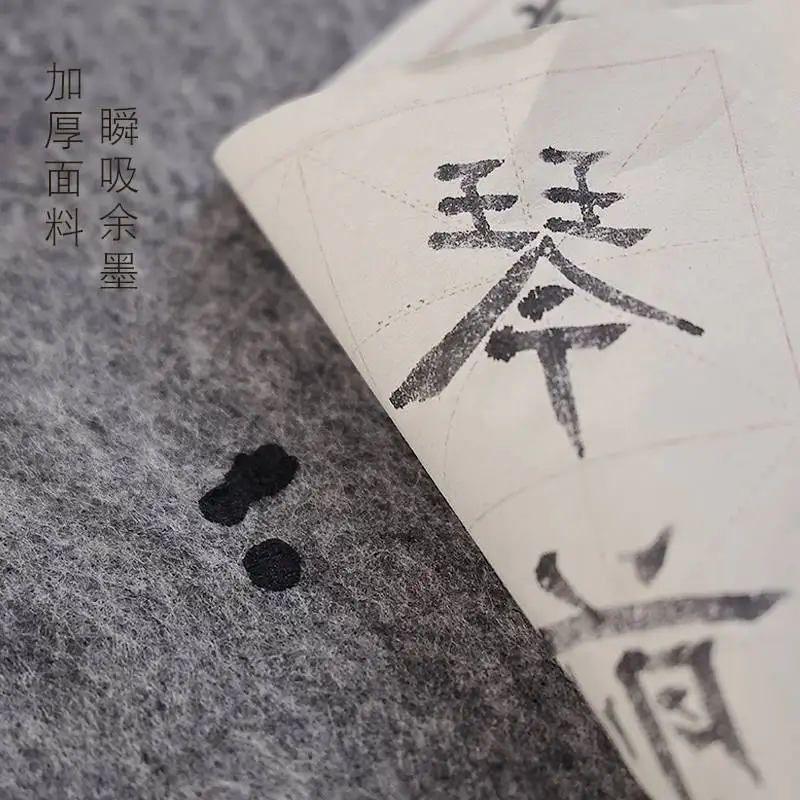 加厚面料
瞬吸余墨
琴